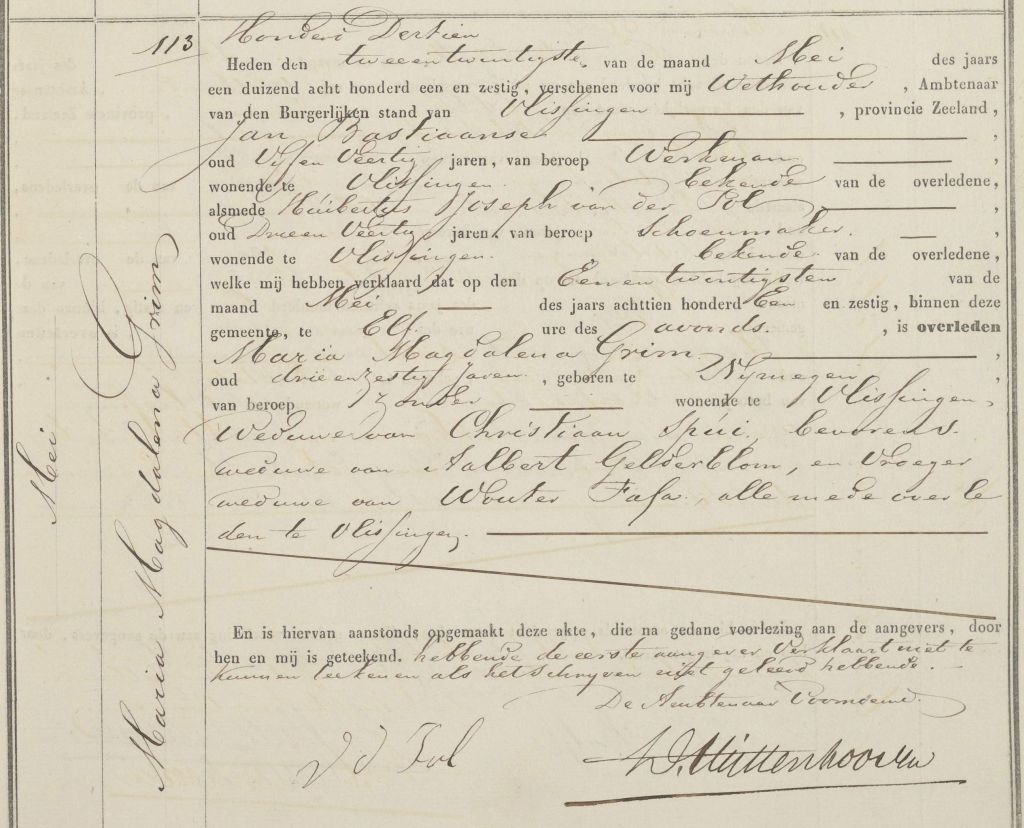 113
Honderd Dertien
Heden den tweeentwintigste van de maand Mei des jaars
een duizend acht honderd een en zestig, verschenen voor mij Wethouder, Ambtenaar
van den Burgerlijken stand van Vlissingen, provincie Zeeland,
Jan Bastiaanse,
oud Vijf en Veertig jaren, van beroep Werkman,
wonende te Vlissingen. bekende van de overledene,
alsmede Huibertus Joseph van der Pol,
oud Drie en Veertig jaren, van beroep Schoenmaker.,
wonende te Vlissingen. bekende van de overledene,
welke mij hebben verklaard dat op den Een en twentigsten van de
maand Mei des jaars achttien honderd Een en zestig, binnen deze
gemeente, te Elf ure des avonds., is overleden
Maria Magdalena Grim,
oud drie en zestig Jaren, geboren te Nijmegen,
van beroep Zonder wonende te Vlissingen,
Weduwe van Christiaan Spui, bevorens
weduwe van Aalbert Gelderblom, en Vroeger
weduwe van Wouter Fasa, alle mede over le
den te Vlissingen.
En is hiervan aanstonds opgemaakt deze akte, die na gedane voorlezing aan de aangevers, door
hen en mij is geteekend. hebbende de eerste aangever Verklaart niet te
kunnen teekenen als het Schrijven niet geleerd hebbende.
De Ambtenaar Voornoemd.
v d Pol
Uittenhooven
Mei
Maria Magdalena Grim